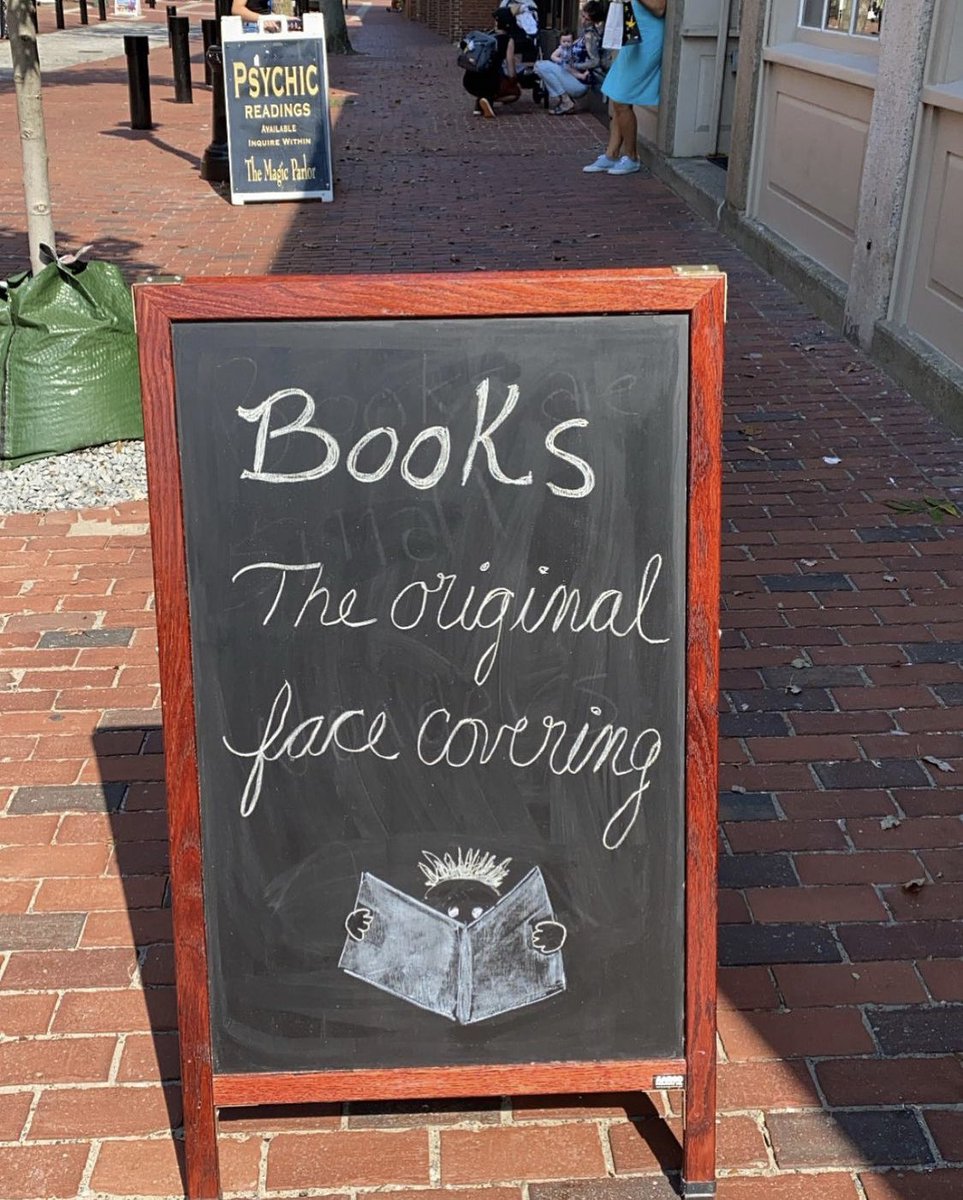 PSYCHIC
READINGS
AVAILABLE
INQUIRE WITHIN
The Magic Parlor
Books
The original
face covering